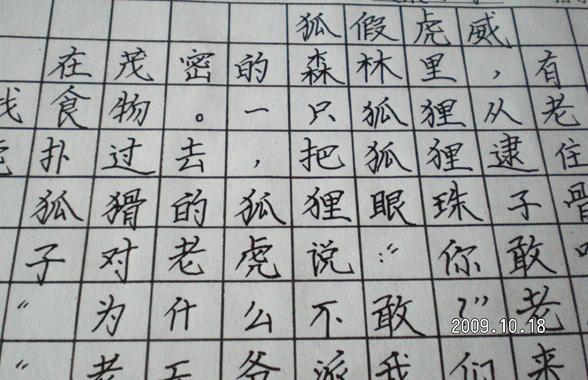 狐假虎威
在茂密的森林里，有
找食物。一只狐狸从老
扑过去，把狐狸逮住
狐猾的狐狸眼珠子骨
子对老虎说：“你敢吃
“为什么不敢？”老
“老天爷派我们来
2009.10.18